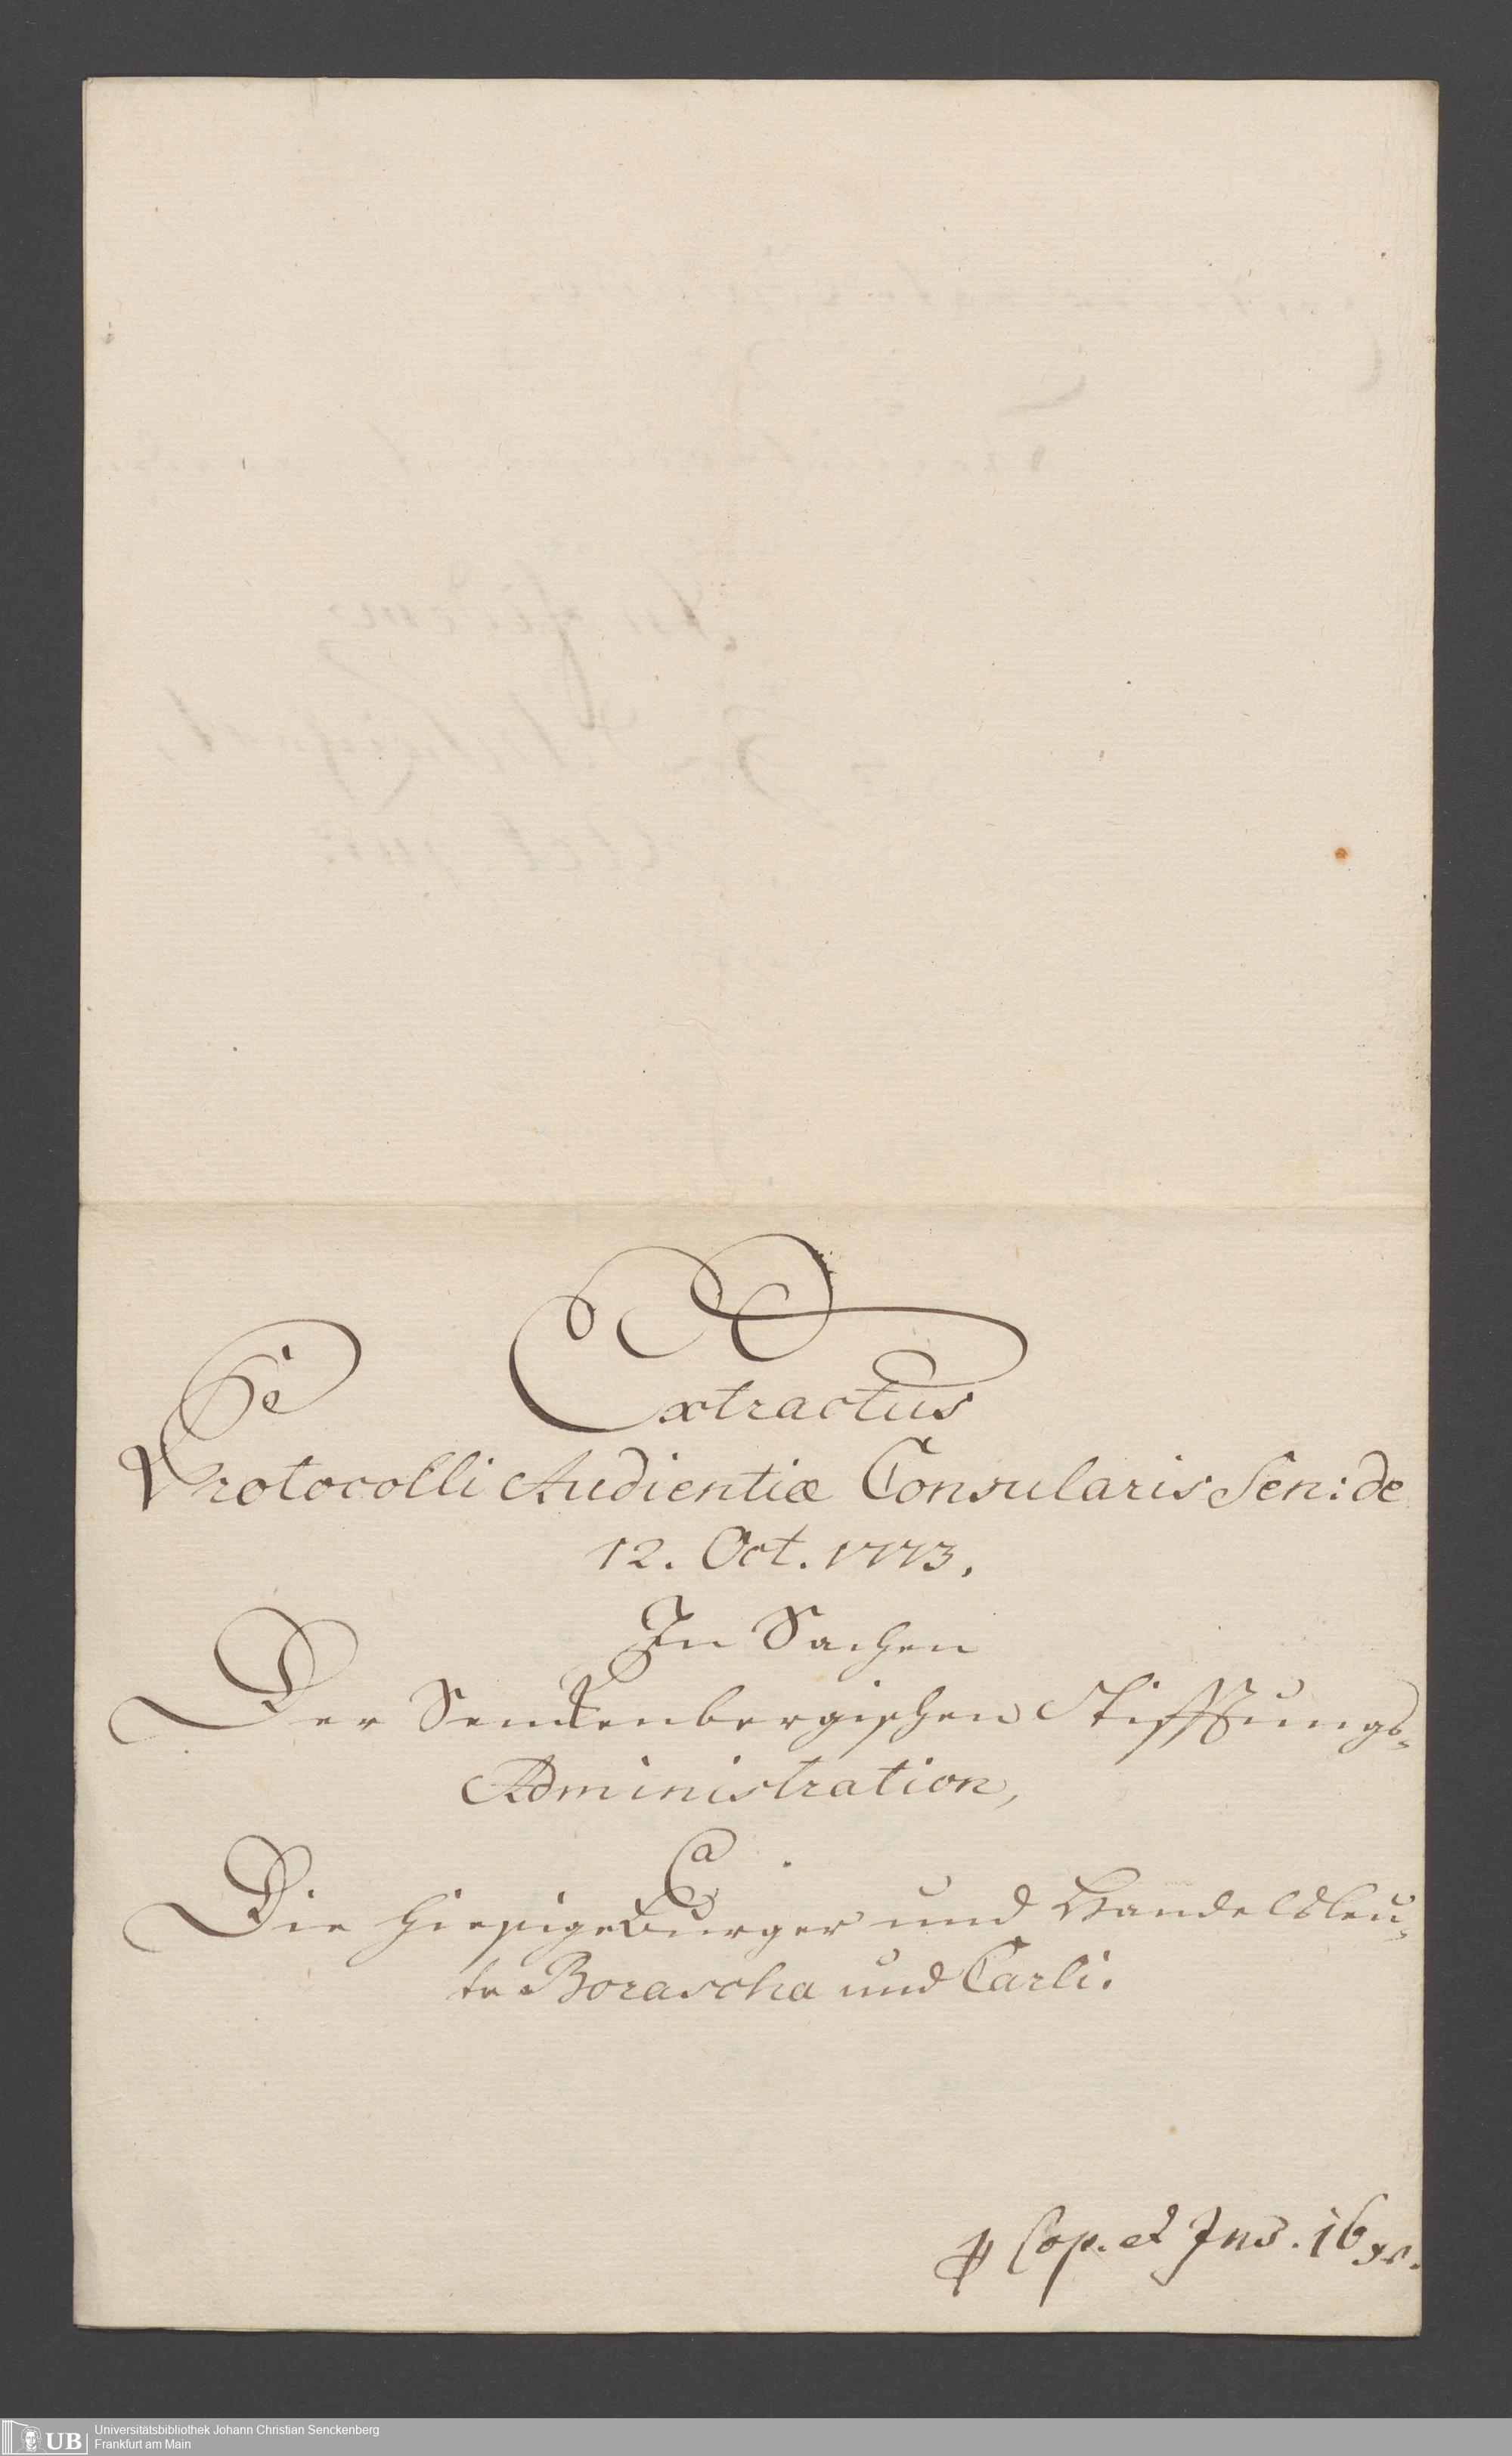 Extractus
Protocolli Audientiæ Consularis Sen: de
12. Oct. 1773.
In Sachen
Der Senckenbergischen Stifftungs-
Administration,
Ca
Die hiesige Burger und Handelsleu-
te Borascha und Carli.
Cop. et Ins. 16 xr.
UB Universitätsbibliothek Johann Christian Senckenberg
Frankfurt am Main